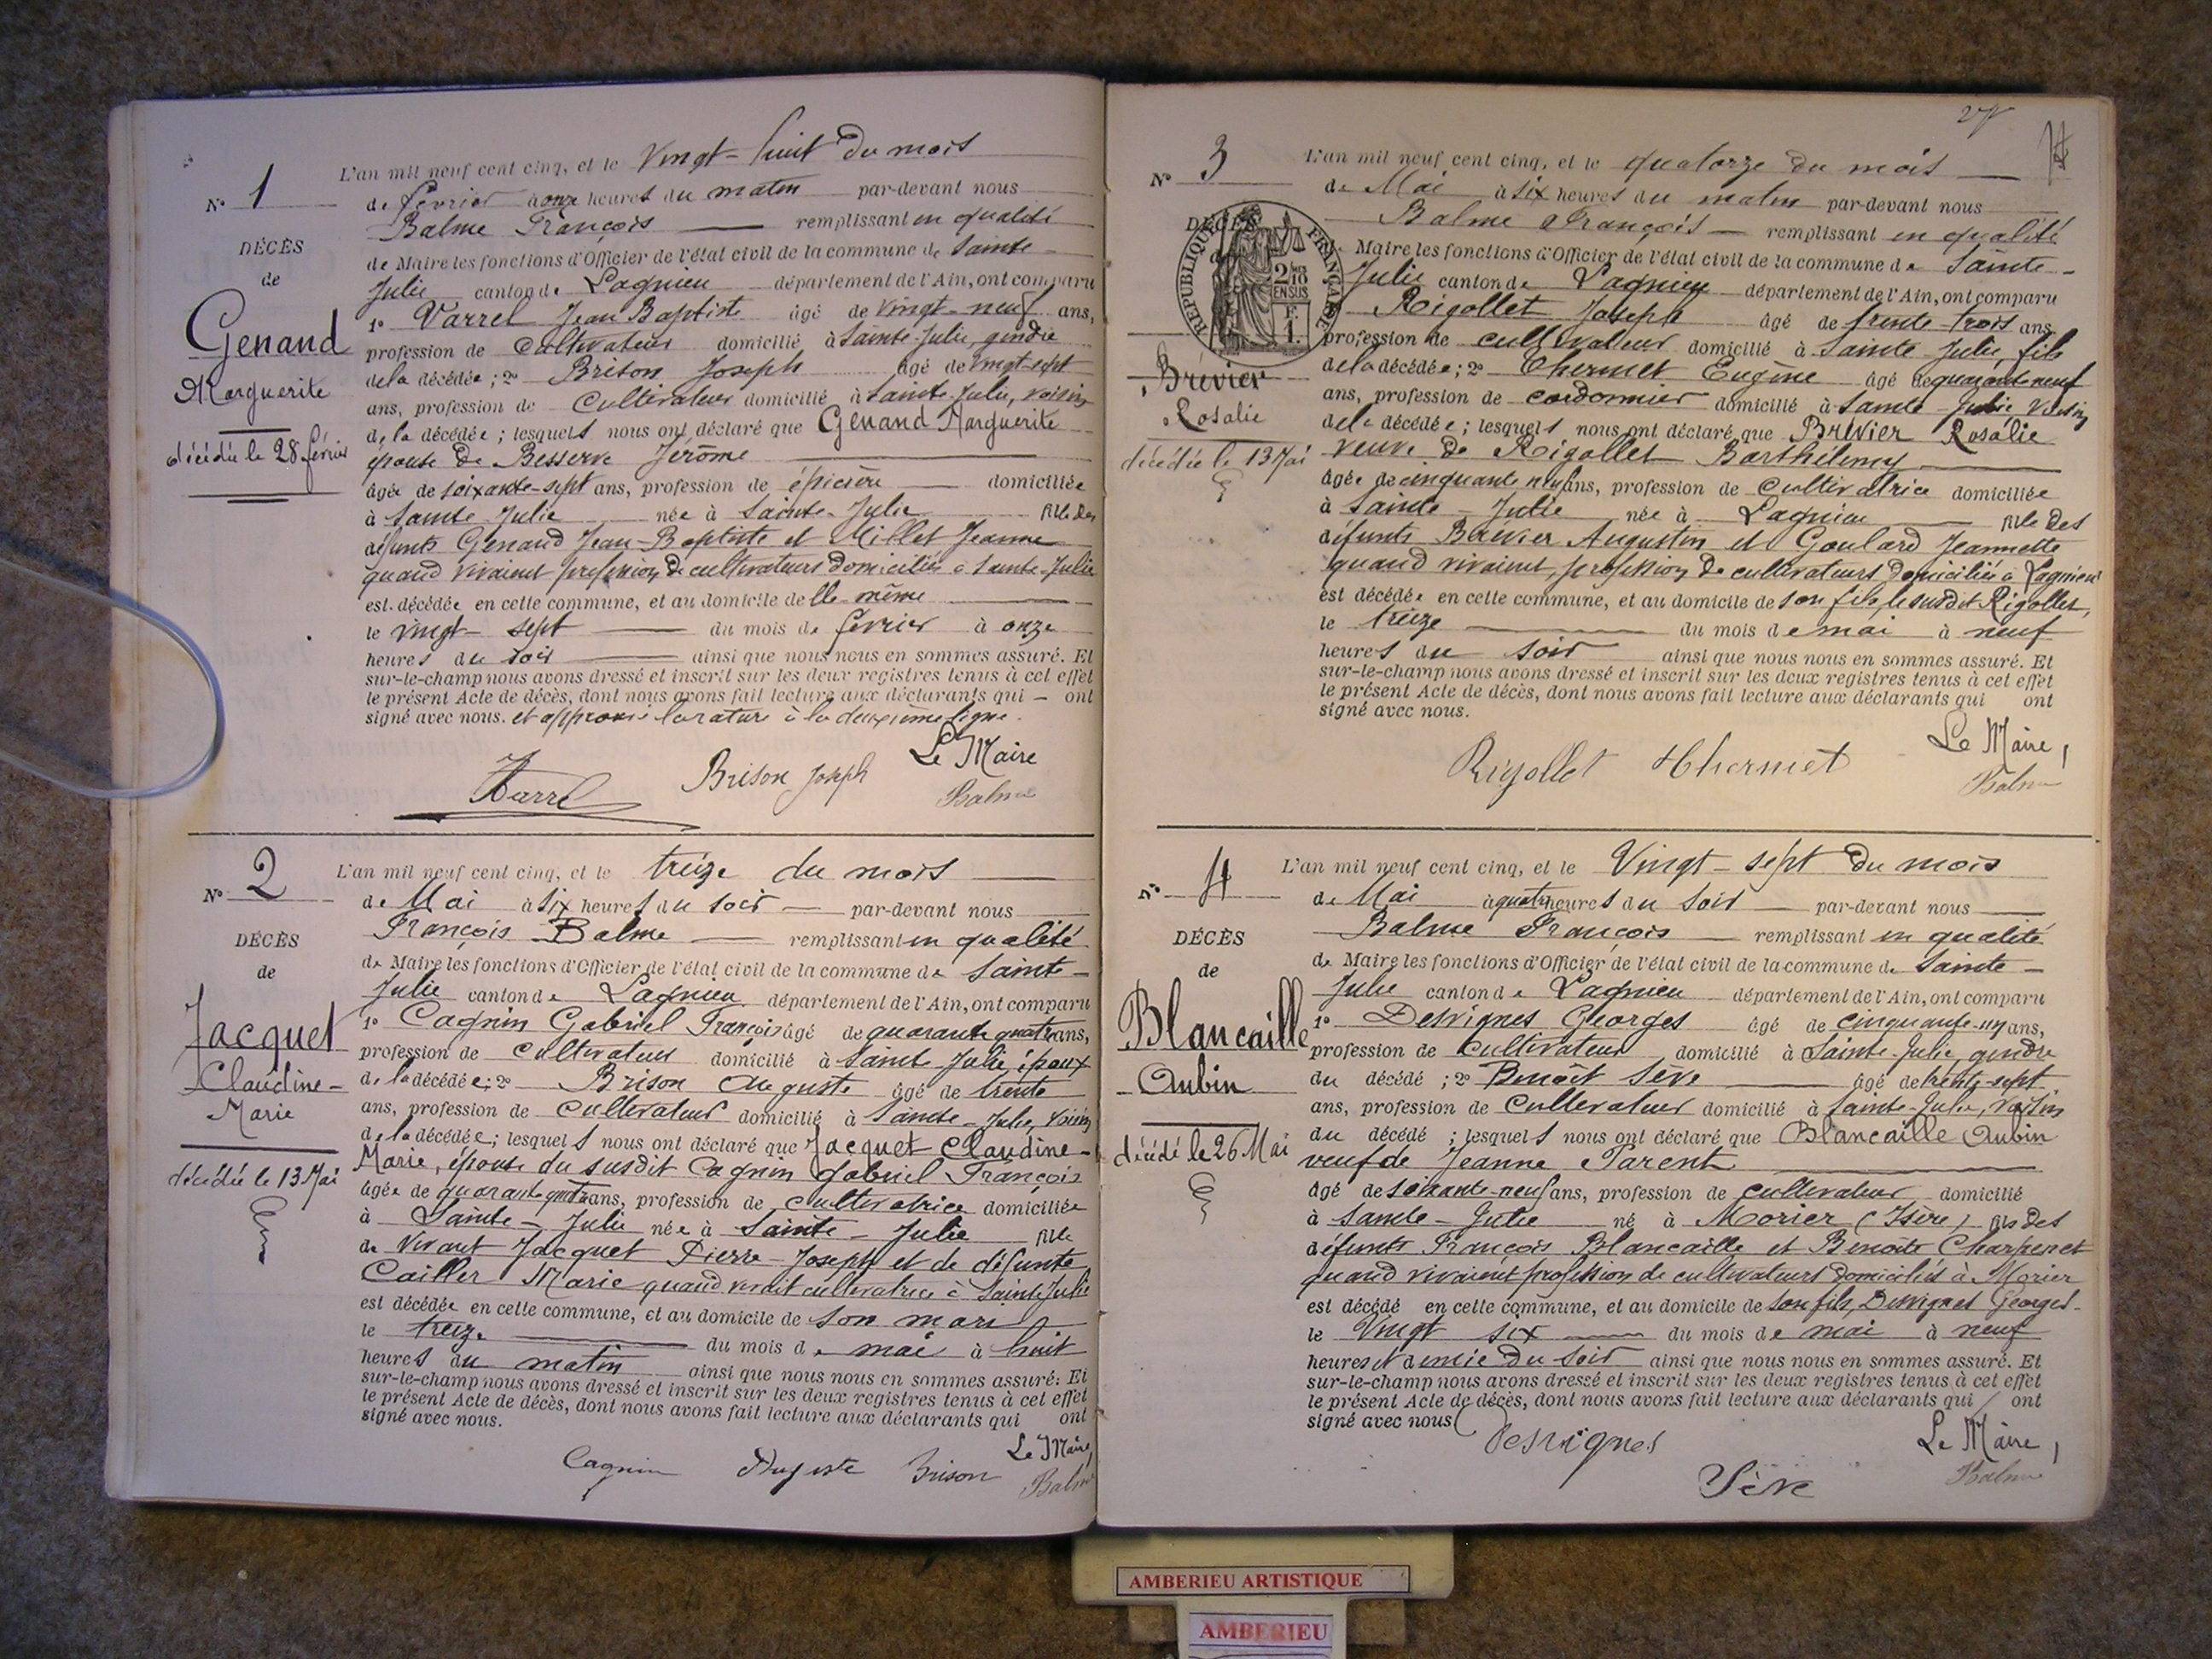 N° 1
DÉCÈS
de
Genand
Marguerite
décédée le 28 février
L'an mil neuf cent cinq, et le Vingt-huit du mois
de février à onze heures du matin par-devant nous
Balme François remplissant en qualité
de Maire les fonctions d'Officier de l'état civil de la commune de Sainte-
Julie canton de Lagnieu département de l'Ain, ont comparu
1° Varrel Jean Baptiste âgé de vingt-neuf ans,
profession de Cultivateur domicilié à Sainte-Julie, gendre
de la décédée; 2° Brison Joseph âgé de vingt-sept
ans, profession de Cultivateur domicilié à Sainte-Julie, voisin
de la décédée; lesquels nous ont déclaré que Genand Marguerite
épouse de Besserve Jérôme
âgée de soixante-sept ans, profession de épicière domiciliée
à Sainte-Julie née à Sainte-Julie fille des
défunts Genand Jean-Baptiste et Millet Jeanne
quand vivaient profession de cultivateurs domiciliés à Sainte-Julie
est décédée en cette commune, et au domicile d'elle-même
le vingt-sept du mois de février à onze
heures du soir ainsi que nous nous en sommes assuré. Et
sur-le-champ nous avons dressé et inscrit sur les deux registres tenus à cet effet
le présent Acte de décès, dont nous avons fait lecture aux déclarants qui ont
signé avec nous. et approuvé la rature à la deuxième ligne.
Le Maire
Varrel Brison Joseph Balme
N° 2
DÉCÈS
de
Jacquet
Claudine-
Marie
décédée le 13 Mai
L'an mil neuf cent cinq, et le treize du mois
de Mai à six heures du soir par-devant nous
François Balme remplissant en qualité
de Maire les fonctions d'Officier de l'état civil de la commune de Sainte-
Julie canton de Lagnieu département de l'Ain, ont comparu
1° Cagnin Gabriel François âgé de quarante quatre ans,
profession de Cultivateur domicilié à Sainte-Julie, époux
de la décédée; 2° Brison Auguste âgé de trente
ans, profession de Cultivateur domicilié à Sainte-Julie, voisin
de la décédée; lesquels nous ont déclaré que Jacquet Claudine-
Marie, épouse du susdit Cagnin Gabriel François
âgée de quarante quatre ans, profession de cultivatrice domiciliée
à Sainte-Julie née à Sainte-Julie fille
de vivant Jacquet Pierre-Joseph et de défunte
Cailler Marie quand vivait cultivatrice à Sainte Julie
est décédée en cette commune, et au domicile de son mari
le treize du mois de mai à huit
heures du matin ainsi que nous nous en sommes assuré. Et
sur-le-champ nous avons dressé et inscrit sur les deux registres tenus à cet effet
le présent Acte de décès, dont nous avons fait lecture aux déclarants qui ont
signé avec nous.
Le Maire,
Cagnin Auguste Brison Balme
N° 3
DÉCÈS
RÉPUBLIQUE FRANÇAISE
2/10
EN SUS
F.
1.
Brévier
Rosalie
décédée le 13 Mai
L'an mil neuf cent cinq, et le quatorze du mois
de Mai à six heures du matin par-devant nous
Balme François remplissant en qualité
de Maire les fonctions d'Officier de l'état civil de la commune de Sainte-
Julie canton de Lagnieu département de l'Ain, ont comparu
Rigollet Joseph âgé de trente-trois ans
profession de cultivateur domicilié à Sainte-Julie, fils
de la décédée; 2° Thermet Eugène âgé de quarante-neuf
ans, profession de cordonnier domicilié à Sainte-Julie voisin
de la décédée; lesquels nous ont déclaré que Brévier Rosalie
veuve de Rigollet Barthélemy
âgée de cinquante neuf ans, profession de Cultivatrice domiciliée
à Sainte-Julie née à Lagnieu fille des
défunts Brévier Augustin et Goulard Jeannette
quand vivaient, profession de cultivateurs domiciliés à Lagnieu
est décédée en cette commune, et au domicile de son fils, le susdit Rigollet,
le treize du mois de mai à neuf
heures du soir ainsi que nous nous en sommes assuré. Et
sur-le-champ nous avons dressé et inscrit sur les deux registres tenus à cet effet
le présent Acte de décès, dont nous avons fait lecture aux déclarants qui ont
signé avec nous.
Le Maire,
Rigollet Thermet Balme
N° 4
DÉCÈS
de
Blancaille
Aubin
décédé le 26 Mai
L'an mil neuf cent cinq, et le Vingt-sept du mois
de Mai à quatre heures du soir par-devant nous
Balme François remplissant en qualité
de Maire les fonctions d'Officier de l'état civil de la commune de Sainte-
Julie canton de Lagnieu département de l'Ain, ont comparu
1° Desvignes Georges âgé de cinquante-un ans,
profession de Cultivateur domicilié à Sainte-Julie, gendre
du décédé; 2° Benoît Sève âgé de trente-sept
ans, profession de Cultivateur domicilié à Sainte-Julie, voisin
du décédé; lesquels nous ont déclaré que Blancaille Aubin
veuf de Jeanne Parent
âgé de soixante-neuf ans, profession de cultivateur domicilié
à Sainte-Julie né à Morier (Isère) fils des
défunts François Blancaille et Benoîte Charpenet
quand vivaient profession de cultivateurs domiciliés à Morier
est décédé en cette commune, et au domicile de son fils Desvignes Georges.
le Vingt six du mois de mai à neuf
heures et demie du soir ainsi que nous nous en sommes assuré. Et
sur-le-champ nous avons dressé et inscrit sur les deux registres tenus à cet effet
le présent Acte de décès, dont nous avons fait lecture aux déclarants qui ont
signé avec nous
Desvignes Le Maire,
Sève Balme
AMBERIEU ARTISTIQUE
AMBERIEU